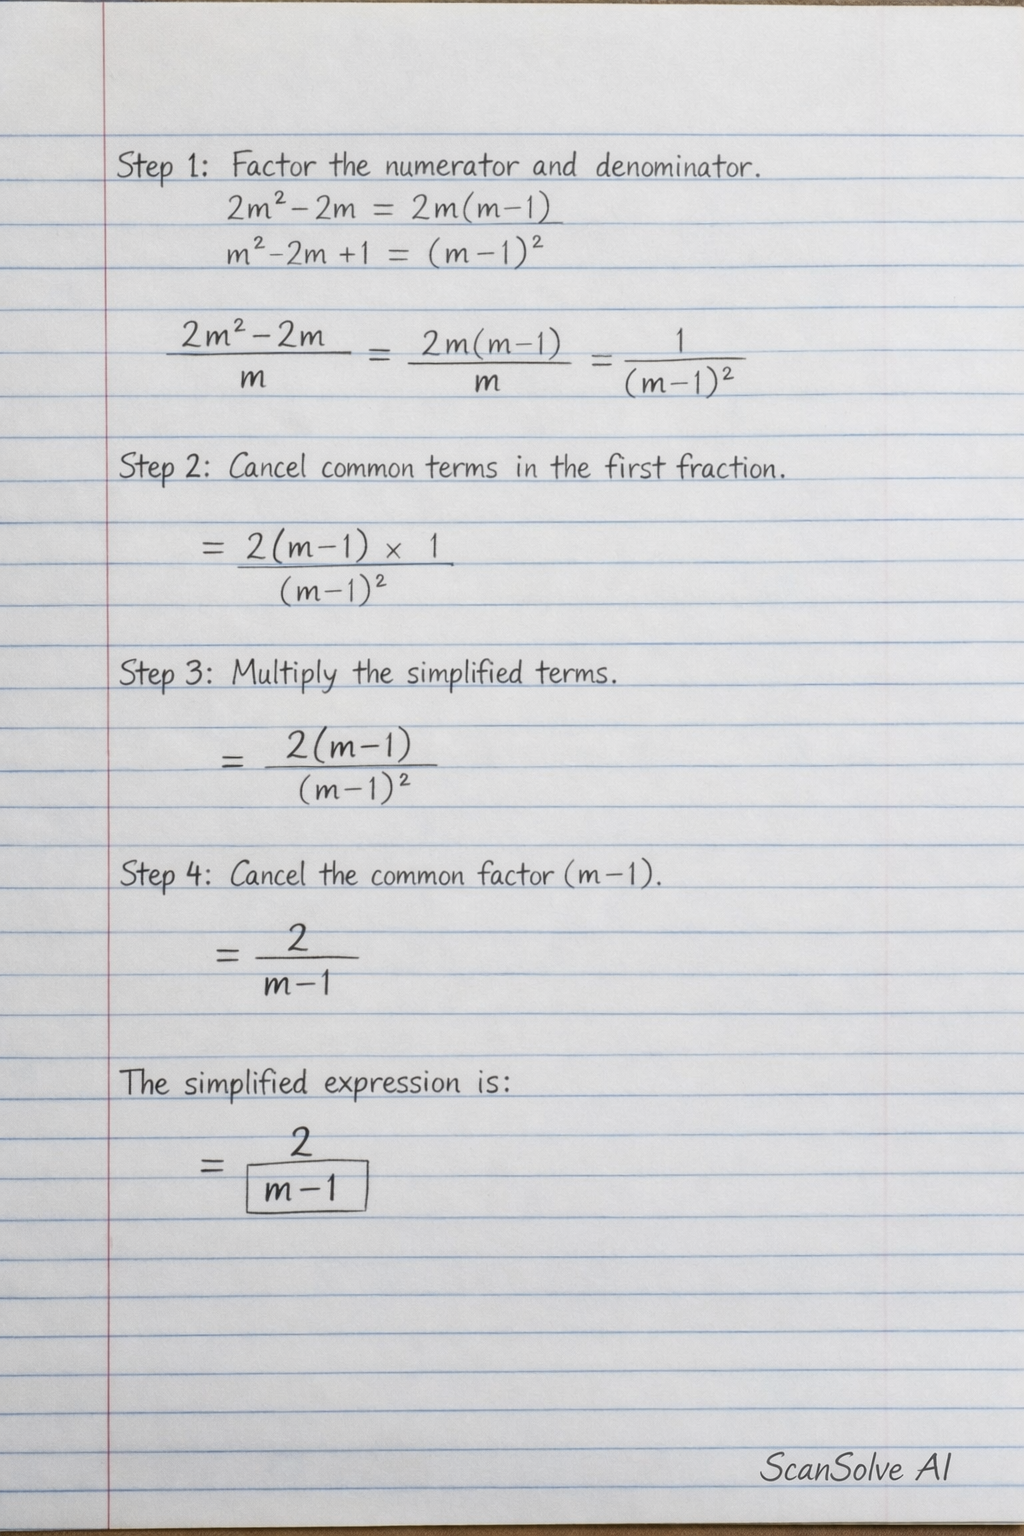 Step 1: Factor the numerator and denominator.
2m² - 2m = 2m(m-1)
m² - 2m + 1 = (m-1)²
(2m² - 2m)/m = 2m(m-1)/m = 1/(m-1)²
Step 2: Cancel common terms in the first fraction.
= 2(m-1) × 1/(m-1)²
Step 3: Multiply the simplified terms.
= 2(m-1)/(m-1)²
Step 4: Cancel the common factor (m-1).
= 2/(m-1)
The simplified expression is:
= 2/(m-1)
ScanSolve AI